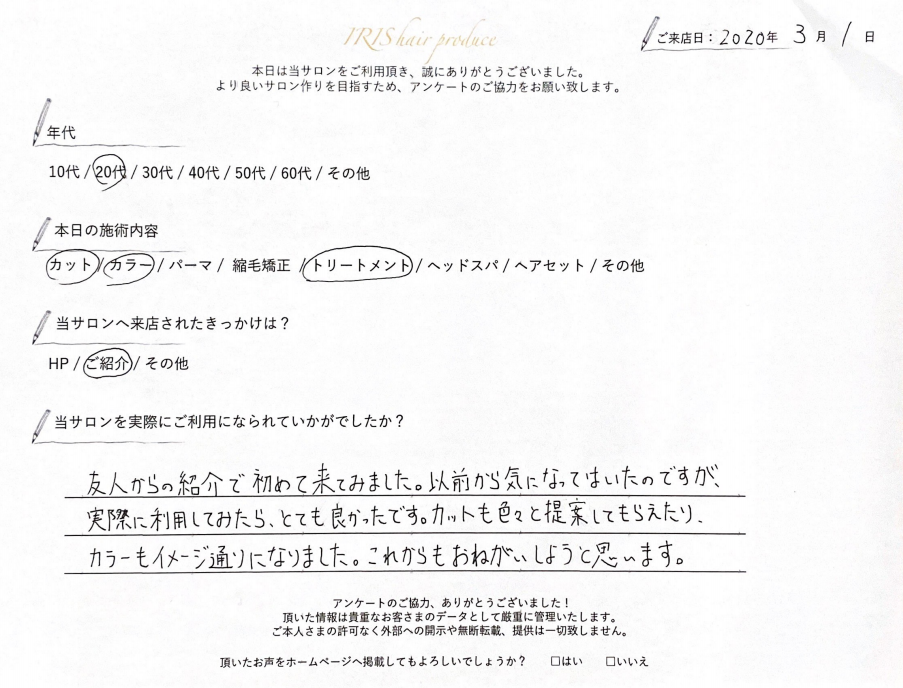 IRIS hair produce
ご来店日：2020年 3月 1日
本日は当サロンをご利用頂き、誠にありがとうございました。
より良いサロン作りを目指すため、アンケートのご協力をお願い致します。
年代
10代 / 20代 / 30代 / 40代 / 50代 / 60代 / その他
本日の施術内容
カット / カラー / パーマ / 縮毛矯正 / トリートメント / ヘッドスパ / ヘアセット / その他
当サロンへ来店されたきっかけは？
HP / ご紹介 / その他
当サロンを実際にご利用になられていかがでしたか？
友人からの紹介で初めて来てみました。以前から気になってはいたのですが、
実際に利用してみたら、とても良かったです。カットも色々と提案してもらえたり、
カラーもイメージ通りになりました。これからもおねがいしようと思います。
アンケートのご協力、ありがとうございました！
頂いた情報は貴重なお客さまのデータとして厳重に管理いたします。
ご本人さまの許可なく外部への開示や無断転載、提供は一切致しません。
頂いたお声をホームページへ掲載してもよろしいでしょうか？ □はい □いいえ